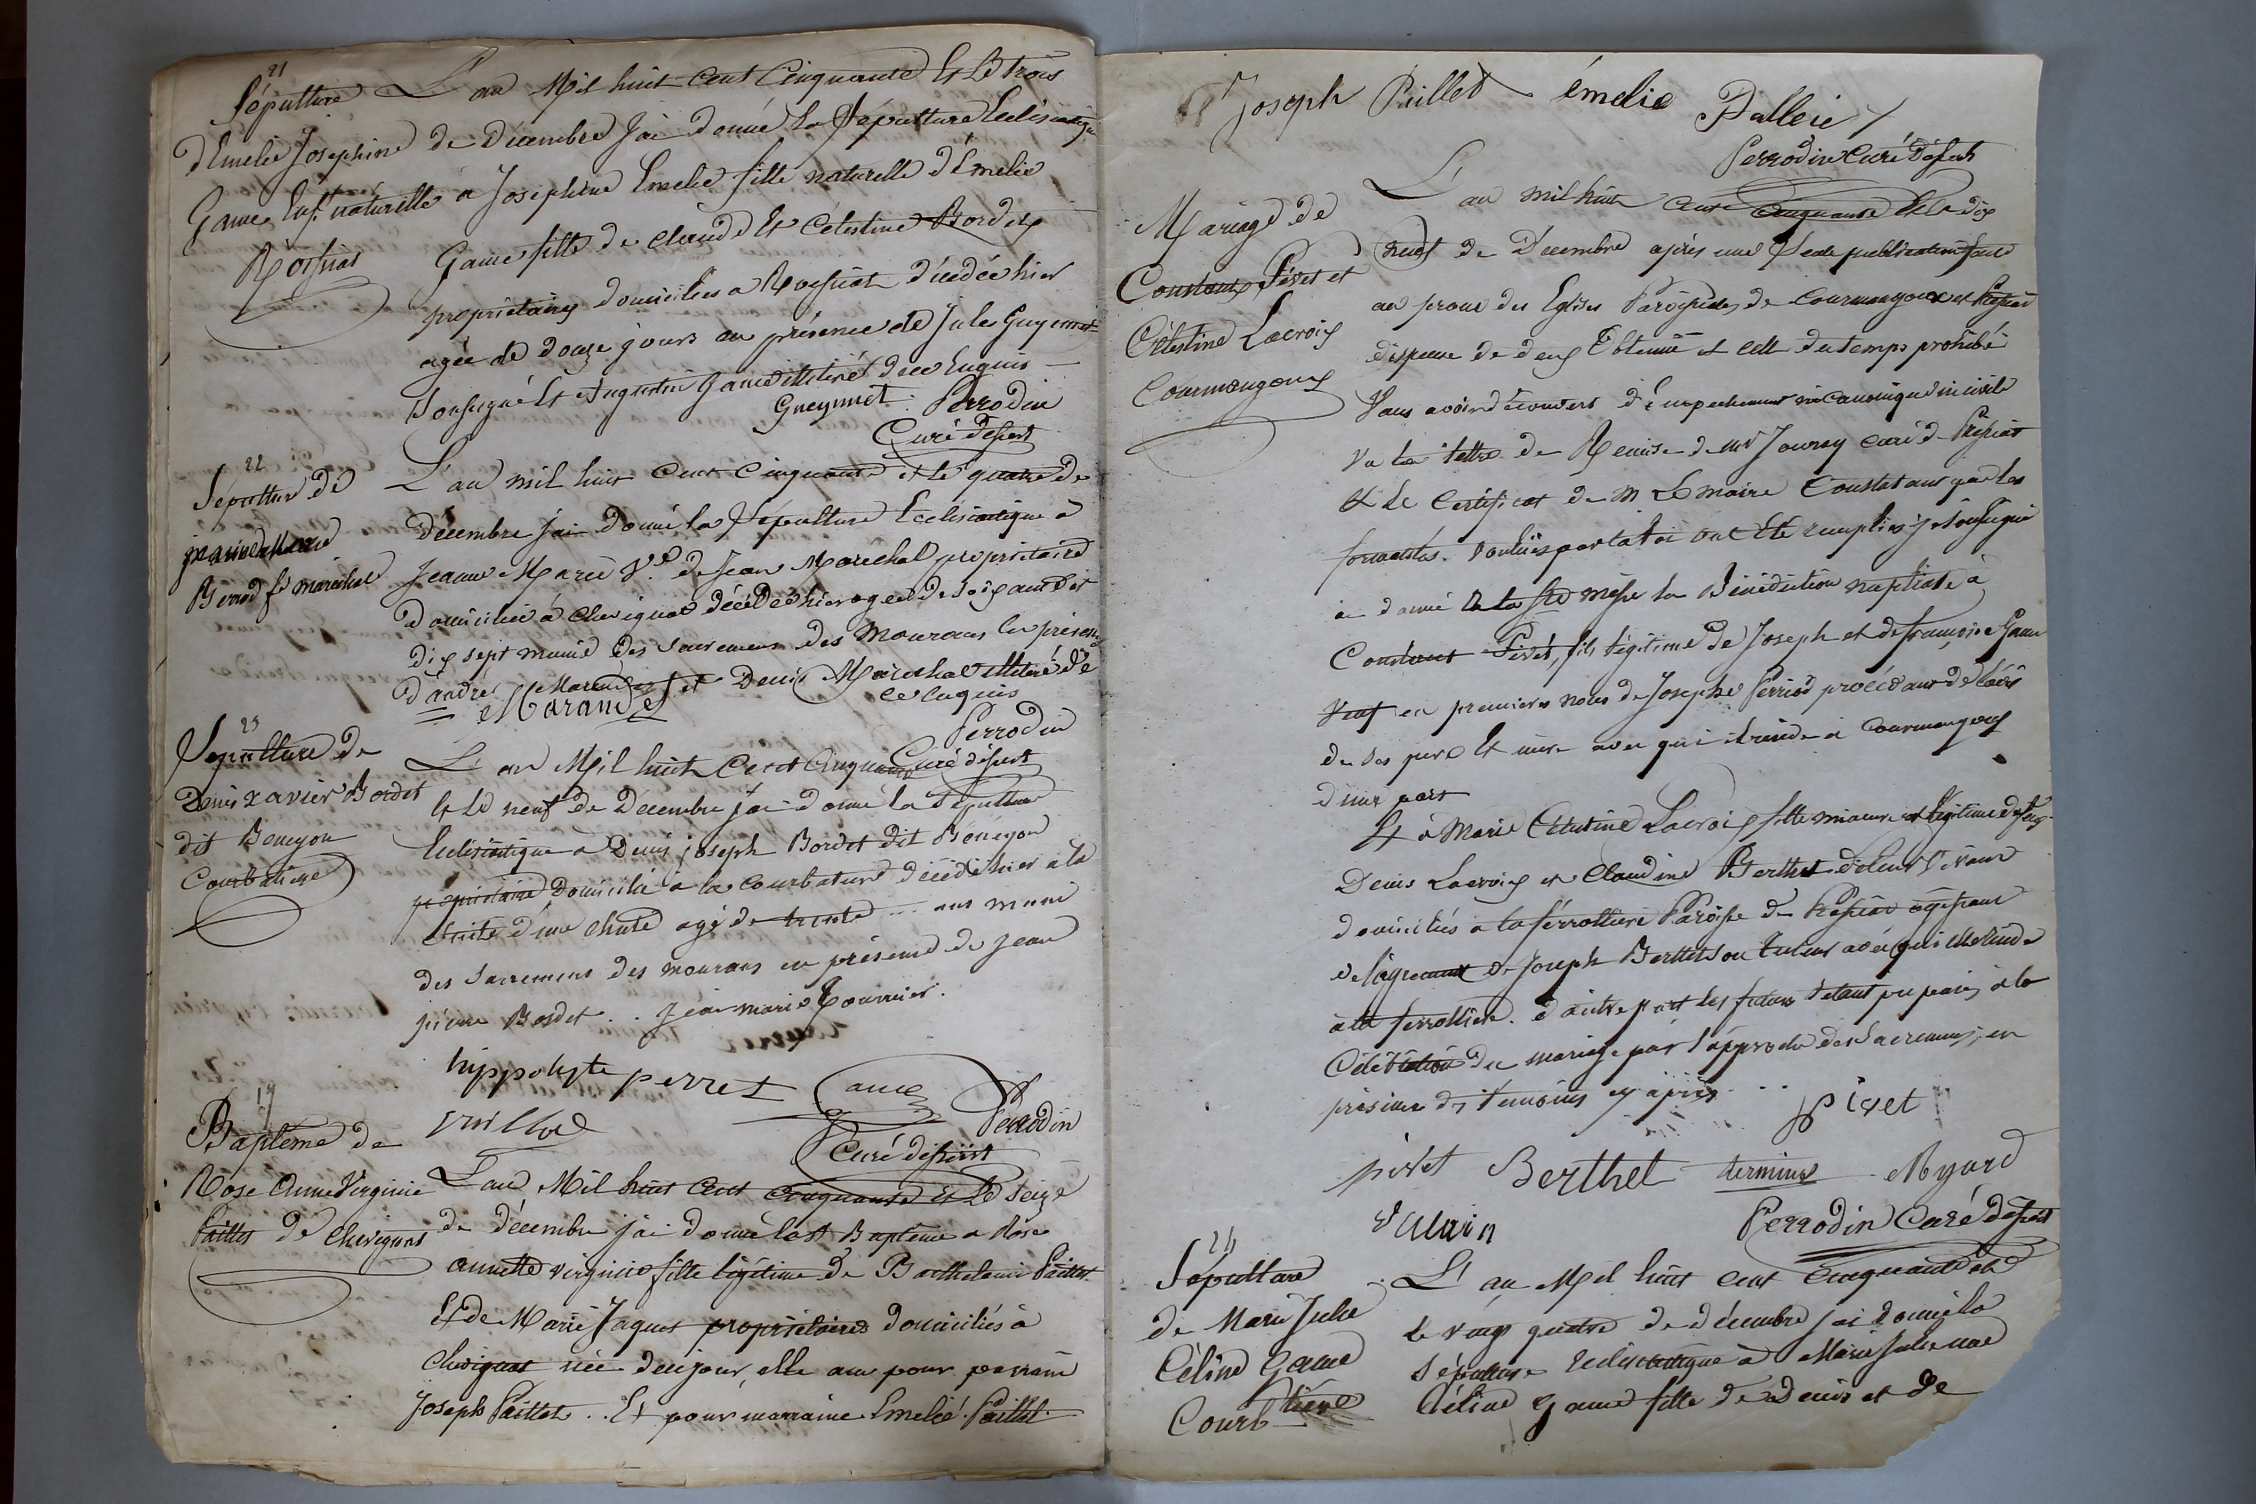 21
Sépulture
d'Emelie Josephine
Game Enft naturelle
Rossiat
L'an Mil huit cent Cinquante Et Le trois
de Décembre J'ai donné La Sépulture Ecclésiastique
a Josephine Emelie fille naturelle d'Émelie
Game fille de claude Et Célestine Bordet
propriétaires domiciliés a Rossiat décédée hier
agée de douze jours en présence de Jules Guyennet
Soussigné Et Augustin Game illitéré de ce Enquis
Gueynnet Perrodin
Curé dessert
22
Sépulture de
jeanne Marie
Perrod fe marechal
L'an mil huit cent cinquante et le quatre de
décembre j'ai donné la Sépulture Ecclésiastique à
Jeanne Marie Ve de Jean Marechal propriétaire
domiciliée à chevignat décédée hier agée de soixante et
dix sept munie des sacremens des mourans en présence
d'andré Marandet et Denis Marechal illitéré de
Marandet ce enquis
Perrodin
Curé dessert
23
Sépulture de
Denis xavier Bordet
dit Beneyon
Courbatiere
L'an Mil huit Cent Cinquante
Et Le neuf de Décembre j'ai donné la Sépulture
Ecclésiastique à Denis joseph Bordet dit Bénéyon
propriétaire Domicilié à la courbature décédé hier à la
suite d'une chute agé de trente ... ans muni
des sacremens des mourans en présence de jean
pierre Bordet .. Jean marie Tournier.
hippolyte perret Game
Perrodin
Curé dessert
17
Baptême de
Rose Anne Virginie
Paillet de Chevignat
L'an Mil huit Cent cinquante et Le Seize
de décembre j'ai donné Le St Baptême a Rose
annette virginie fille légitime de Barthelemi Paillet
Et de Marie Jaquet propriétaires domiciliés à
Chevignat née du jour, elle a eu pour parrain
Joseph Paillet .. Et pour marraine Emelié Paillet.
Joseph Paillet émelie
Palleie
Perrodin Curé dessert
Mariage de
Constant Pivet et
Célestine Lacroix
Courmangoux
L'an mil huit cent cinquante Et le dix
neuf de Décembre après une seule publication faite
au prone des Eglises Paroissiales de Courmangoux et Pressiat
dispense de deux Obtenue et celle du temps prohibé
Sans avoir découvert d'empechement ni canonique ni civile
Vu la lettre de Remise de mr Journey curé de Pressiat
Et Le Certificat de M Le maire Constatant que les
formalités voulues par la loi ont été remplies je soussigné
ai donné la Ste messe la Bénédiction nuptiale à
Constant Pivet, fils légitime de Joseph et de françoise Game
Veuf en premieres noces de Josephe Perriod procédant de l'avis
de ses pere Et mere avec qui il reside à Courmangoux
d'une part
Et à Marie Célestine Lacroix fille mineure et légitime de feu
Denis Lacroix et Claudine Berthet de leur vivant
domiciliés à la férrolliere Paroisse de Pressiat agissant
de l'agrement de Joseph Berthet son tuteur avec qui elle reside
à la ferrolliere. d'autre part les futurs s'étant préparés à la
Célébration du mariage par l'approche des Sacremens; en
présence des témoins cy après ...
Pivet
pivet Berthet Myard
Perrodin Curé dessert
24
Sépulture
de Marie Julie
Céline Game
Courbtiere
L'an Mil huit cent Cinquante et
Le vingt quatre de décembre j'ai donné la
Sépulture Ecclésiastique à Marie Julienne
Céline Game fille de Denis et de